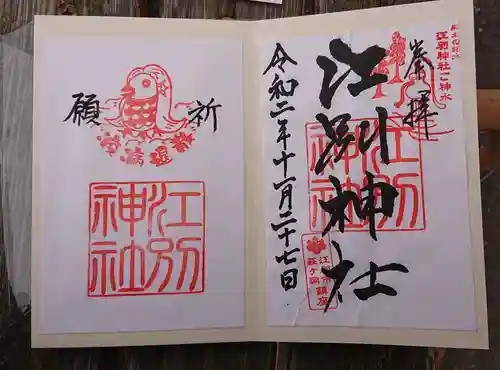 奉拝
江別神社
令和二年十一月二十七日
江別神社
江別神社ご神木
祈願
疫病退散
江別神社